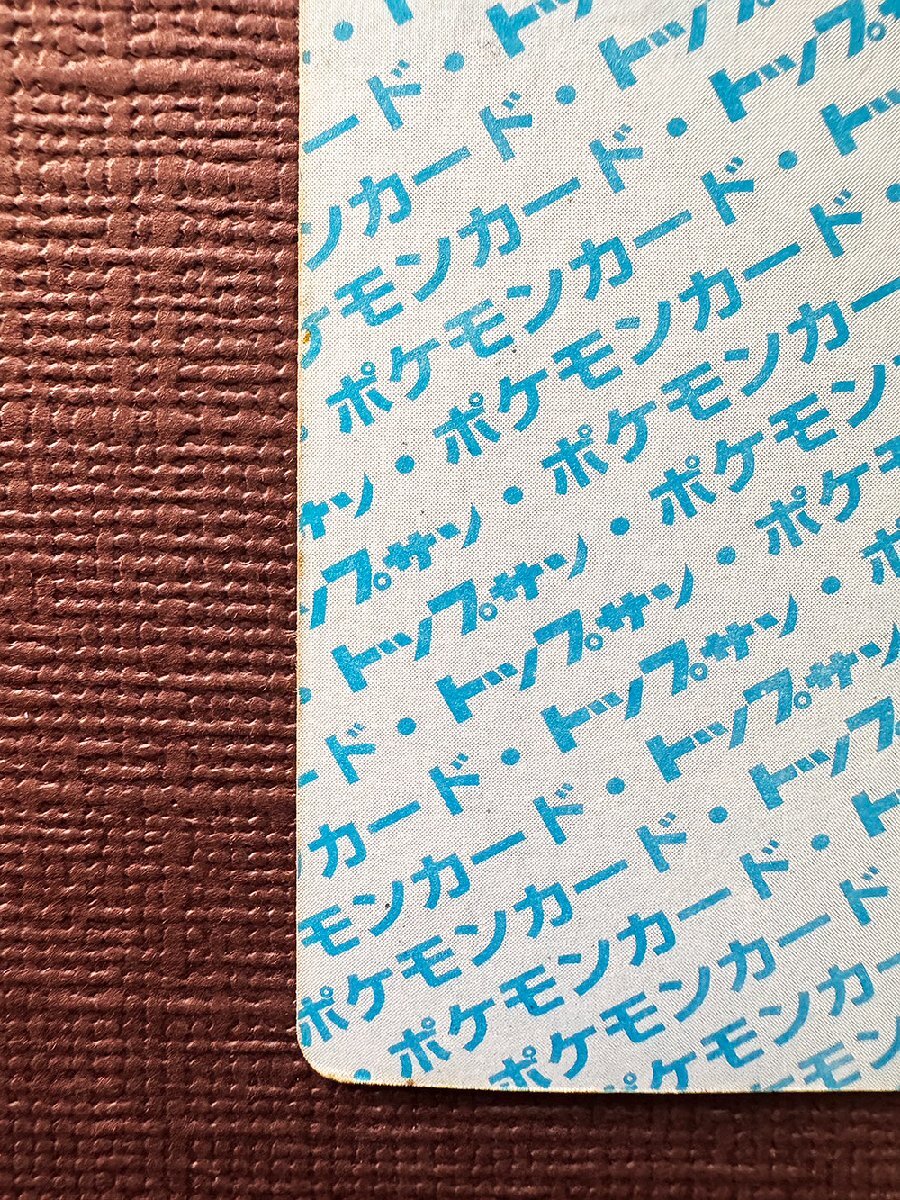 ード・トップ
ンカード・トップ
ケモンカード・トッ
ポケモンカード・ト
・ポケモンカード・
サン・ポケモンカード
ップサン・ポケモンカ
・トップサン・ポケモン
ード・トップサン・ポケ
ンカード・トップサン・ポ
モンカード・トップサン
ポケモンカード・トップ
・ポケモンカード・ト
ポケモンカード
ケモンカー
モン